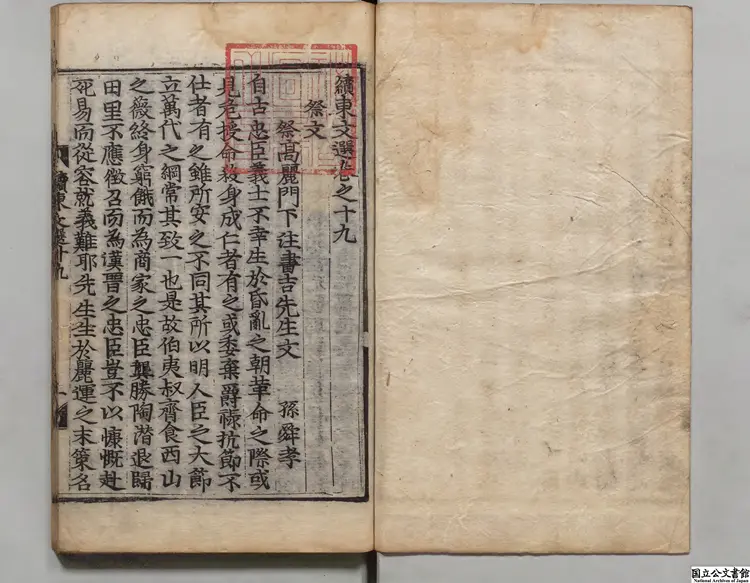 續東文選卷之十九
祭文
祭高麗門下注書吉先生文 孫舜孝
自古忠臣義士不幸生於昏亂之朝革命之際或
見危授命殺身成仁者有之或委棄爵祿抗節不
仕者有之雖所安之不同其所以明人臣之大節
立萬代之綱常其致一也是故伯夷叔齊食西山
之薇終身窮餓而為商家之忠臣龔勝陶潛退歸
田里不應徵召而為漢晋之忠臣豈不以慷慨赴
死易而從容就義難耶先生生於麗運之末策名
續東文選十九
一
国立公文書館
National Archives of Japan